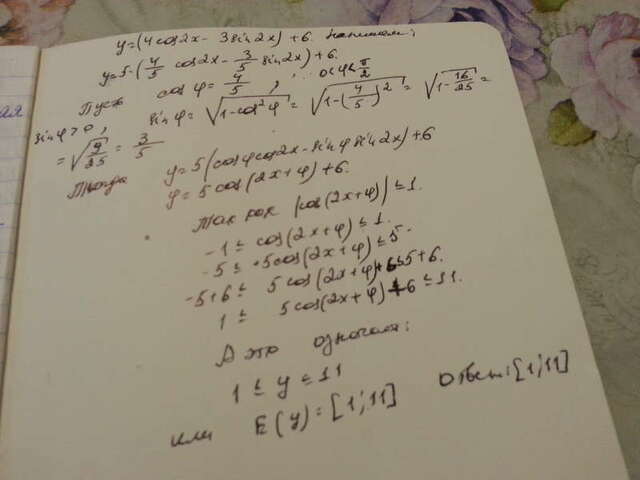 y=(4cos2x - 3sin2x)+6. Напишем:
y=5·(4/5 cos2x - 3/5 sin2x)+6.
Пусть cos φ = 4/5, 0<φ<π/2
sin φ>0, sin φ = √(1-cos²φ) = √(1-(4/5)²) = √(1-16/25) =
= √(9/25) = 3/5
Тогда y=5(cosφcos2x-sinφsin2x)+6
y=5cos(2x+φ)+6.
Так как |cos(2x+φ)|≤1.
-1≤cos(2x+φ)≤1.
-5≤5cos(2x+φ)≤5.
-5+6≤5cos(2x+φ)+6≤5+6.
1≤5cos(2x+φ)+6≤11.
А это означает:
1≤y≤11
или E(y)=[1;11] Ответ:[1;11]